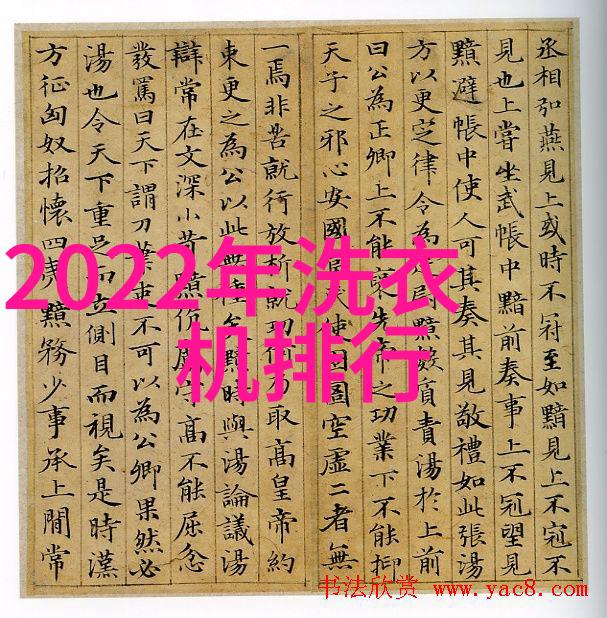 丞相弘燕見上或時不冠至如黯見上不冠不
見也上嘗坐武帳中黯前奏事上不冠望見
黯避帳中使人可其奏其見敬禮如此張湯
方以更定律令為廷尉黯數質責湯於上前
曰公為正卿上不能襃先帝之功業下不能抑
天子之邪心安國民使囹圄空虛二者無
一焉非苦就行放析就功何乃取高皇帝約
束更之為公以此無種矣黯時與湯論議湯
辯常在文深小苛黯伉厲守高不能屈忿
發罵曰天下謂刀筆吏不可以為公卿果然必
湯也令天下重足而立側目而視矣是時漢
方征匈奴招懷四夷黯務少事承上間常
2022年洗衣
机排行
书法欣赏 www.yac8.com